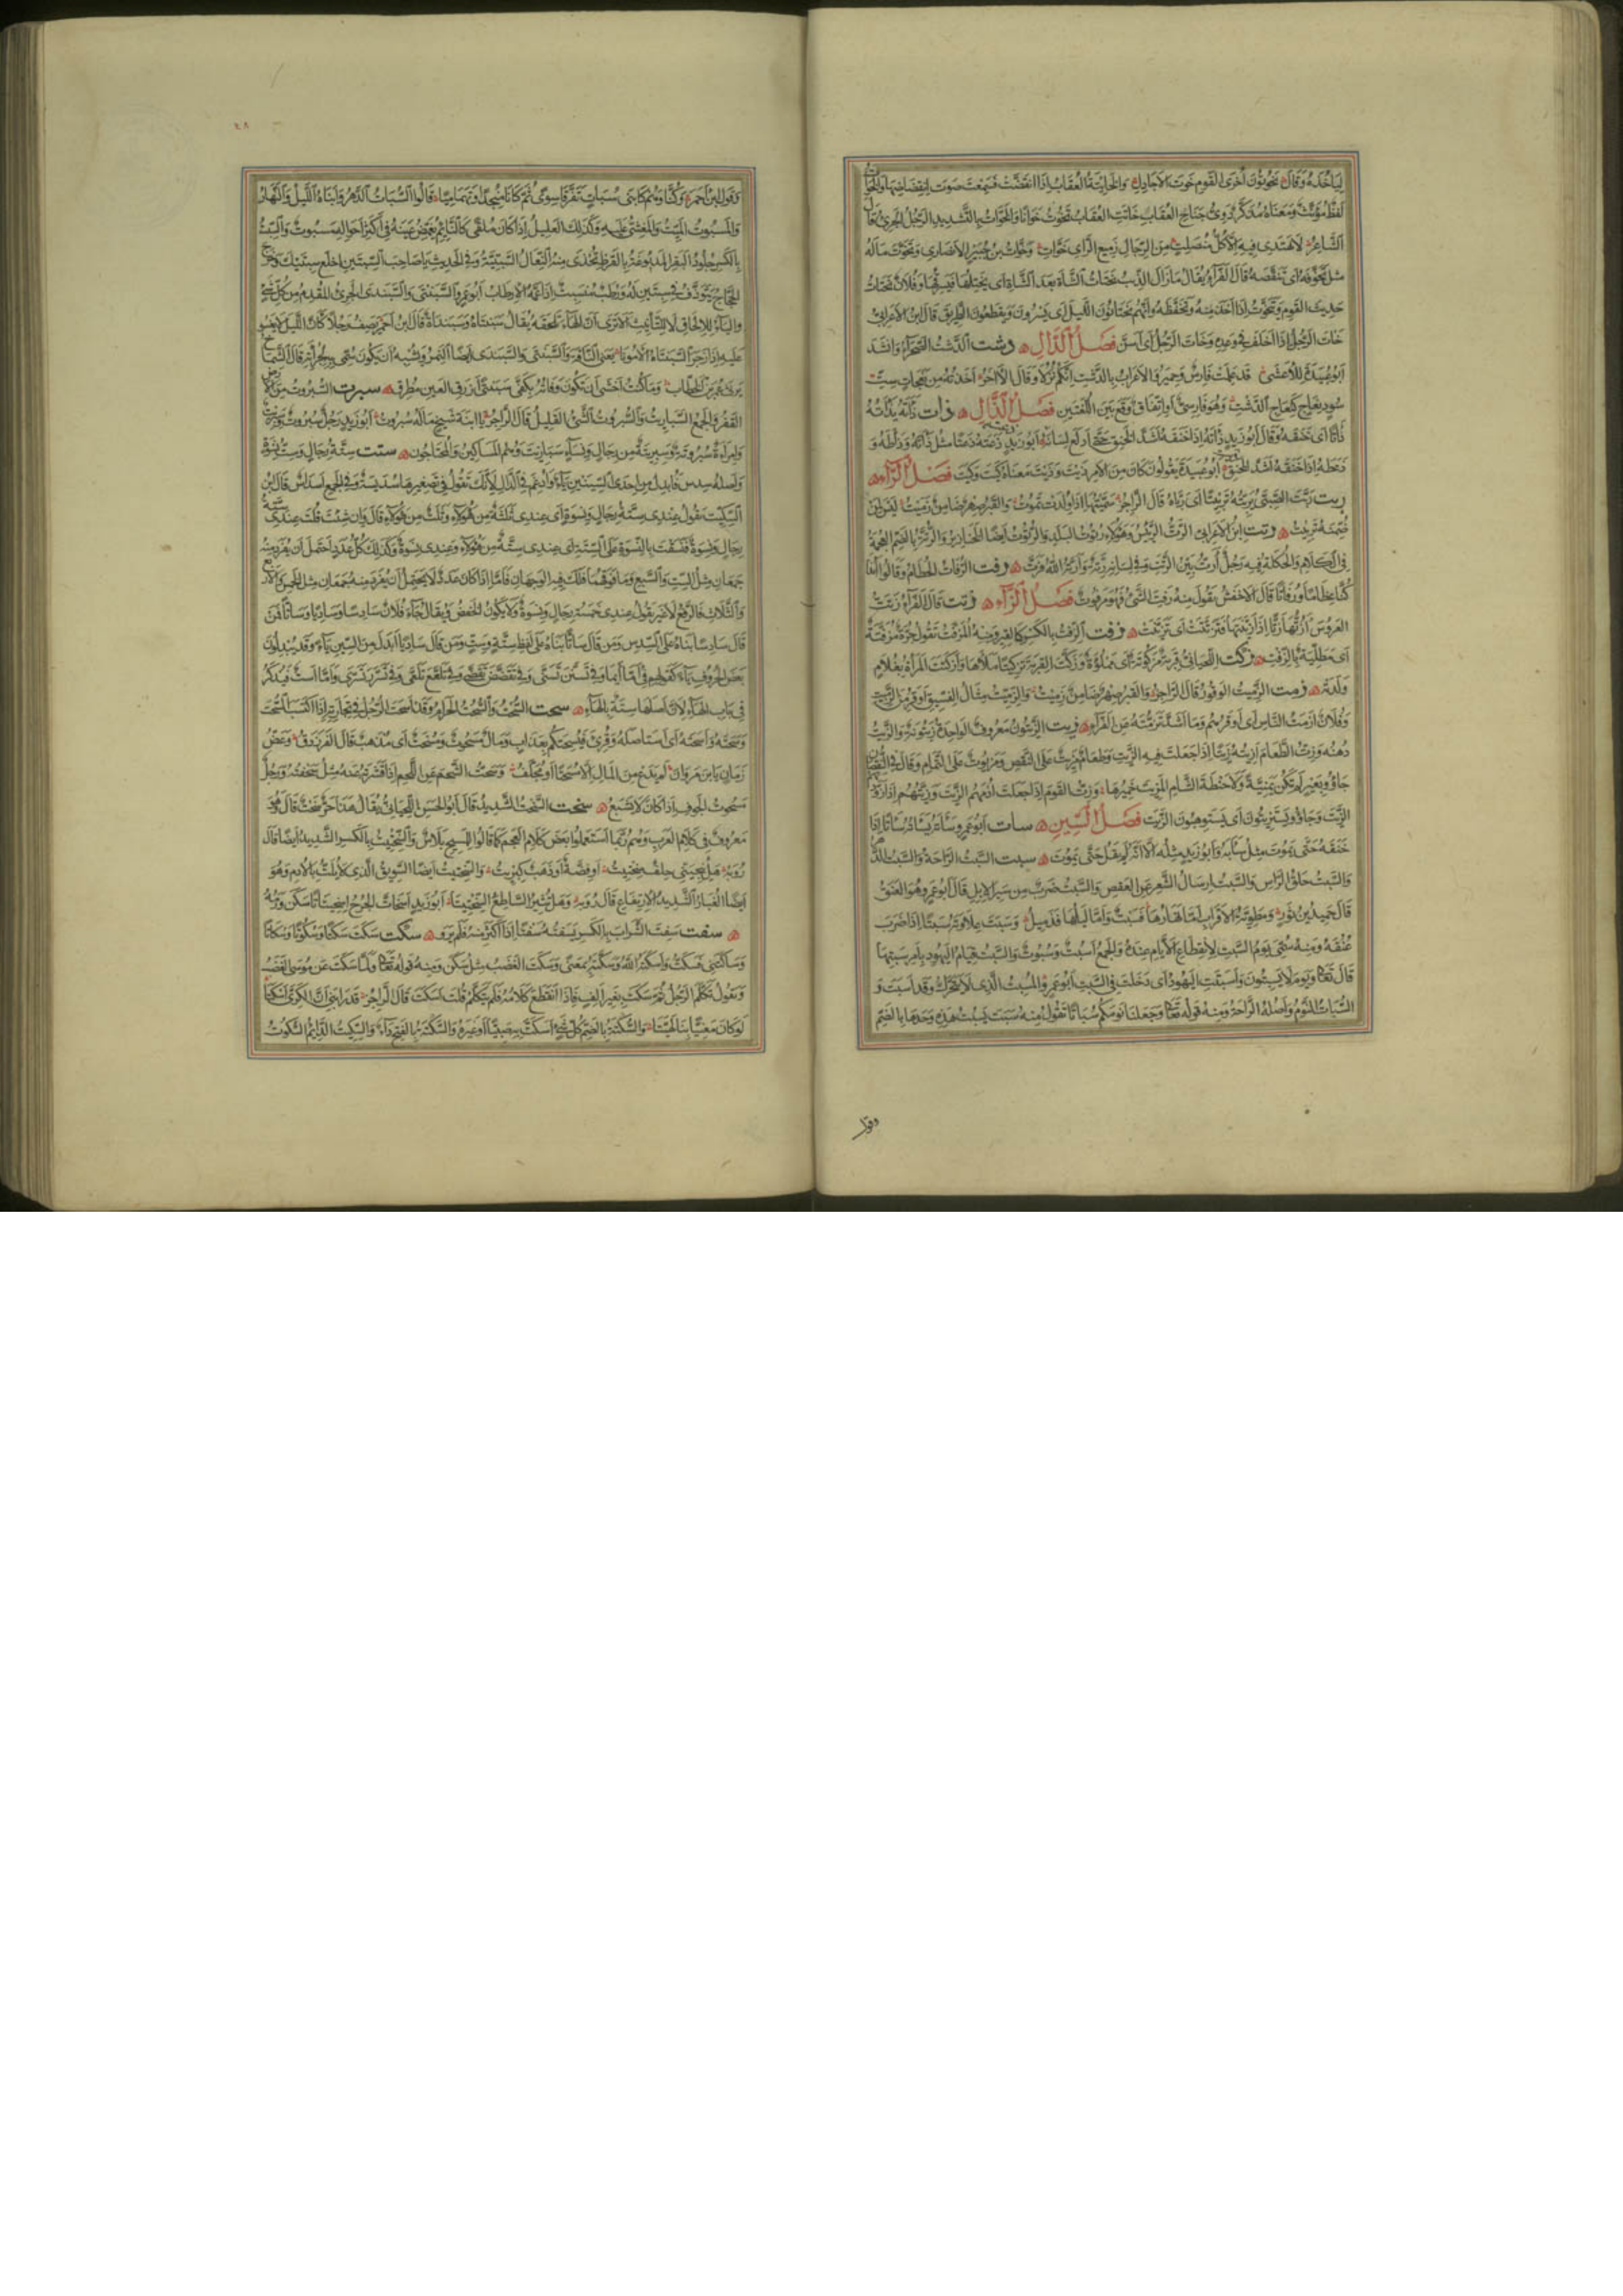 ليأخذه وقال يخوتون أخرى القوم خوت الأجادل والخائتة العقاب إذا انقضت فسمعت صوت انقضاضها والخوات
لفظ مؤنث ومعناه مذكر دوي جناح العقاب خاتت العقاب تخوت خواتا والخوات بالتشديد الرجل الجريء قال
الشاعر لا يهتدي فيه إلا كل منصلت من الرجال زميع الرأي خوات وخوات بن جبير الأنصاري وتخوت ماله
مثل تخوفه أي تنقصه قال الفراء يقال ما زال الذئب يختات الشاة بعد الشاة أي يختلها فيسرقها وفلان يختات
حديث القوم ويتخوت إذا أخذ منه وتحفظه وإنهم يختاتون الليل أي يسرون ويقطعون الطريق قال ابن الأعرابي
خات الرجل إذا أخلف في وعده وخات الرجل أي أسن فصل الدال دشت الدشت الصحراء وأنشد
أبو عبيدة للأعشى قد علمت فارس وحمير والأعراب بالدشت أيكم نزلا وقال الآخر أخذته من نعجات ست
سود نعاج كنعاج الدشت وهو فارسي أو اتفاق وقع بين اللغتين فصل الذال ذات ذأته يذأته
ذأتا أي خنقه وقال أبو زيد ذأته إذا خنقه أشد الخنق حتى أدلع لسانه أبو زيد ذعته ذعتا مثل ذأته وذأطه و
ذعطه إذا خنقه أشد الخنق أبو عبيدة يقولون كان من الأمر ذيت وذيت معناه كيت وكيت فصل الراء
ربت ربت الصبي يربته تربيتا أي رباه قال الراجز سميتها إذ ولدت تموت والقبر صهر ضامن زميت ليس لمن
ضمنه تربيت رتت ابن الأعرابي الرت الرئيس وهؤلاء رتوت البلد والرتوت أيضا الخنازير والرتة بالضم العجمة
في الكلام والحكلة فيه رجل أرت بين الرتت وفي لسانه رتة وأرته الله فرت رفت الرفات الحطام وقالوا أئذا
كنا عظاما ورفاتا قال الأخفش تقول منه رفت الشيء فهو مرفوت فصل الزاء زتت قال الفراء زتت
العروس أزتها زتا إذا زينتها فتزتتت أي تزينت زفت الزفت بالكسر كالقير ومنه المزفت تقول جرة مزفتة
أي مطلية بالزفت زكت اللحياني قربة مزكوتة أي مملوءة وزكت القربة تزكيتا ملأها وأزكتت المرأة بغلام
ولدته زمت الزميت الوقور قال الراجز والقبر صهر ضامن زميت والزميت مثال الفسيق أوقر من الزميت
وفلان أزمت الناس أي أوقرهم وما أشد تزمته عن الفراء زيت الزيتون معروف الواحدة زيتونة والزيت
دهنه وزت الطعام أزيته زيتا إذا جعلت فيه الزيت وطعام مزيت على النقص ومزيوت على التمام وقال في النقصان
جاؤوا بعير لم تكن يمنية ولا حنطة الشام المزيت خميرها وزت القوم إذا جعلت أدمهم الزيت وزيتهم إذا زودتهم
الزيت وجاؤوا يستزيتون أي يستوهبون الزيت فصل السين سات أبو عمرو سأته يسأته سأتا إذا
خنقه حتى يموت مثل سأبه وأبو زيد مثله إلا أنه لم يقل حتى يموت سبت السبت الراحة والسبت الدهر
والسبت حلق الرأس والسبت إرسال الشعر عن العقص والسبت ضرب من سير الإبل قال أبو عمرو هو العنق
قال حميد بن ثور ومطوية الأقراب أما نهارها فسبت وأما ليلها فذميل وسبت علاوته سبتا إذا ضرب
عنقه ومنه سمي يوم السبت لانقطاع الأيام عنده والجمع أسبت وسبوت والسبت قيام اليهود بأمر سبتها
قال تعالى ويوم لا يسبتون وأسبتت اليهود أي دخلت في السبت أبو عمرو المسبت الذي لا يتحرك وقد أسبت و
السبات النوم وأصله الراحة ومنه قوله تعالى وجعلنا نومكم سباتا تقول منه سبت يسبت هذه وحدها بالضم
وقول
٤٨
وقول ابن أحمر وكنا وهم كابني سبات تفرقا سوى ثم كانا منجدا وتهاميا قالوا السبات الدهر وابناه الليل والنهار
والمسبوت الميت والمغشي عليه وكذلك العليل إذا كان ملقى كالنائم يغمض عينيه في أكثر أحواله مسبوت والسبت
بالكسر جلود البقر المدبوغة بالقرظ تحذى منه النعال السبتية وفي الحديث يا صاحب السبتين اخلع سبتيك وخرج
الحجاج يتوذف في سبتين له ورطب منسبت إذا عمه الإرطاب أبو عمرو السبنتى والسبندى الجريء المقدم من كل شيء
والياء للإلحاق لا للتأنيث ألا ترى أن الهاء تلحقه يقال سبنتاة وسبنداة قال ابن أحمر يصف رجلا كأن الليل لا يغسو
عليه إذا زجر السبنتاة الأمونا يعني الناقة والسبنتى والسبندى أيضا النمر ويشبه أن يكون سمي به لجرأته قال الشماخ
يرثي عمر بن الخطاب وما كنت أخشى أن تكون وفاته بكفي سبنتى أزرق العين مطرق سبرت السبروت من الأرض
القفر والجمع السباريت والسبروت الشيء القليل قال الراجز يا ابنة شيخ ما له سبروت أبو زيد رجل سبروت وسبريت
وامرأة سبروتة وسبريتة من رجال ونساء سباريت وهم المساكين والمحتاجون ستت ستة رجال وست نسوة
وأصله سدس فأبدل من إحدى السينين تاء وأدغم في الدال لأنك تقول في تصغيرها سديسة وفي الجمع أسداس قال ابن
السكيت تقول عندي ستة رجال ونسوة أي عندي ثلثة من هؤلاء وثلث من هؤلاء قال وإن شئت قلت عندي ستة
رجال ونسوة فنسقت بالنسوة على الستة أي عندي ستة من هؤلاء وعندي نسوة وكذلك كل عدد احتمل أن يفرد منه
جمعان مثل الست والسبع وما فوقهما فلك فيه الوجهان فأما إذا كان عدد لا يحتمل أن يفرد منه جمعان مثل الخمس والأربع
والثلاث فالرفع لا غير يقول عندي خمسة رجال ونسوة ولا يكون الخفض ويقال جاء فلان سادسا وساديا وساتا فمن
قال سادسا بناه على السدس ومن قال ساتا بناه على لفظ ستة وست ومن قال ساديا أبدل من السين ياء وقد يبدلون
بعض الحروف ياء كقولهم في أما أيما وفي تسنن تسنى وفي تقضض تقضى وفي تلعع تلعى وفي تسرر تسرى وأما است فيذكر
في باب الهاء لأن أصلها سته بالهاء سحت السحت والسحت الحرام وقد أسحت الرجل في تجارته إذا اكتسب السحت
وسحته وأسحته أي استأصله وقرئ فيسحتكم بعذاب ومال مسحوت ومسحت أي مذهب قال الفرزدق وعض
زمان يا ابن مروان لم يدع من المال إلا مسحتا أو مجلف وسحت الشحم عن اللحم إذا قشرته عنه مثل سحفته ورجل
مسحوت الجوف إذا كان لا يشبع سخت السخت الشديد قال أبو الحسن اللحياني يقال هذا حر سخت قال هو
معروف في كلام العرب وهم ربما استعملوا بعض كلام العجم كما قالوا للمسح بلاس والسختيت بالكسر الشديد أيضا قال
رؤبة هل ينجيني حلف سختيت أو فضة أو ذهب كبريت والسختيت أيضا السويق الذي لا يلت بالأدم وهو
أيضا الغبار الشديد الارتفاع قال رؤبة وهل تثير الساطع السختيتا أبو زيد اسخات الجرح اسخيتاتا سكن ورمه
سفت سفت الشراب بالكسر يسفته سفتا إذا أكثر منه فلم يرو سكت سكت سكتا وسكوتا وسكاتا
وساكتني فسكت وأسكته الله وسكته بمعنى وسكت الغضب مثل سكن ومنه قوله تعالى ولما سكت عن موسى الغضب
وتقول تكلم الرجل ثم سكت بغير ألف فإذا انقطع كلامه فلم يتكلم قلت أسكت قال الراجز قد رابني أن الكري أسكتا
لو كان معنيا بنا لهيتا والسكتة بالضم كل شيء أسكت به صبيا أو غيره والسكتة بالفتح داء والسكيت الدائم السكوت